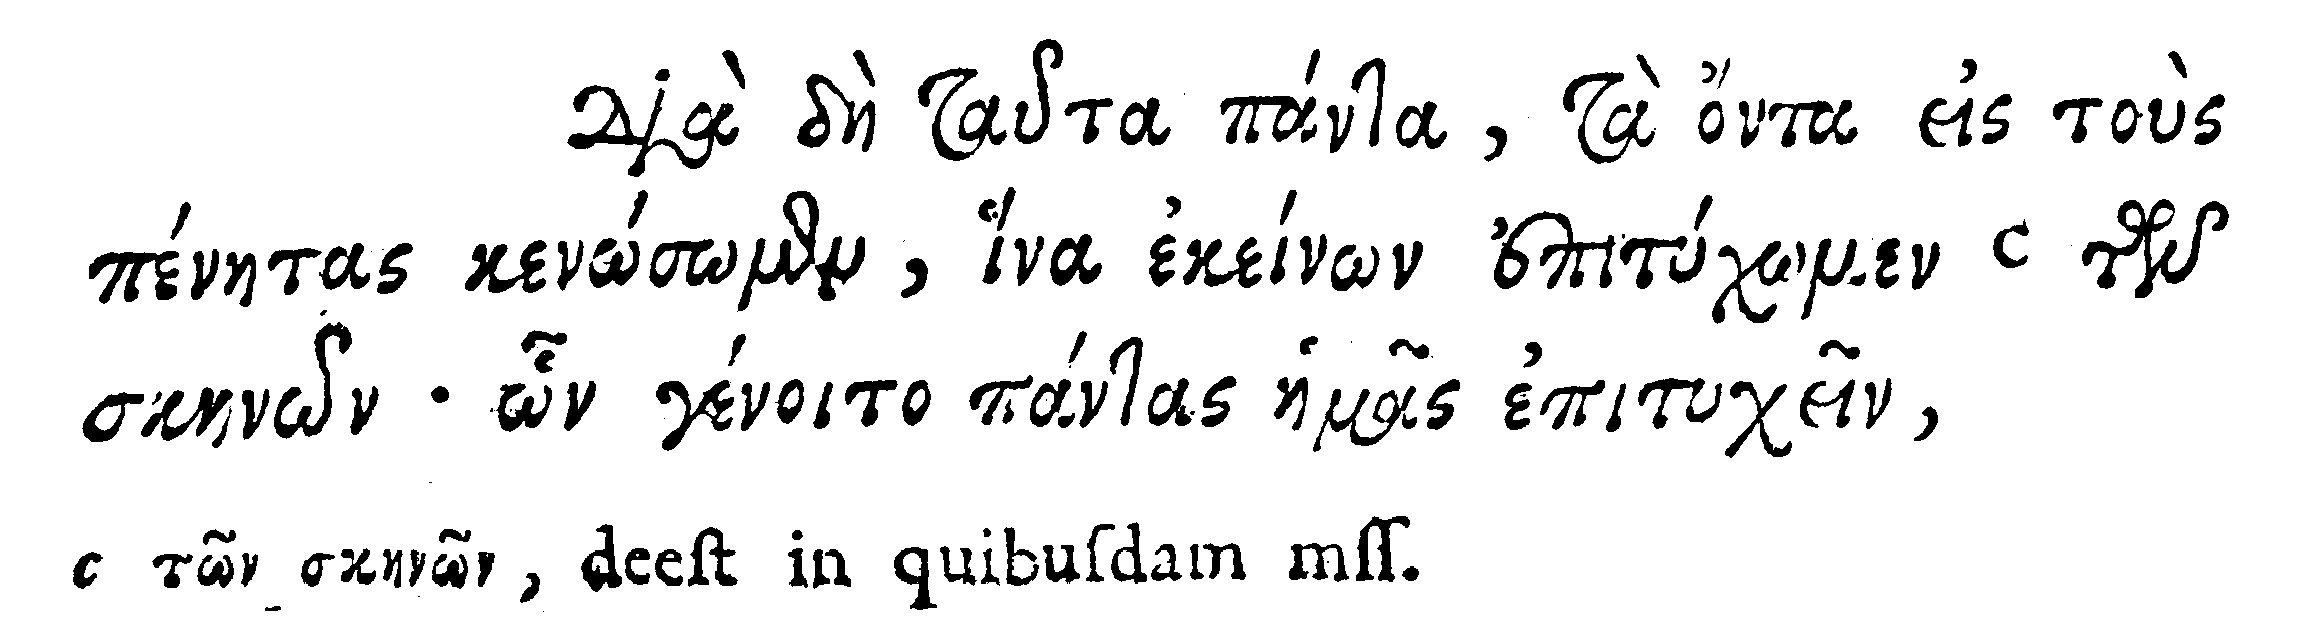 Διὰ δὴ ταῦτα πάντα, τὰ ὄντα εἰς τοὺς
πένητας κενώσωμεν, ἵνα ἐκείνων ἐπιτύχωμεν c τῶν
σκηνῶν · ὧν γένοιτο πάντας ἡμᾶς ἐπιτυχεῖν,
c τῶν σκηνῶν, deeſt in quibuſdam mſſ.